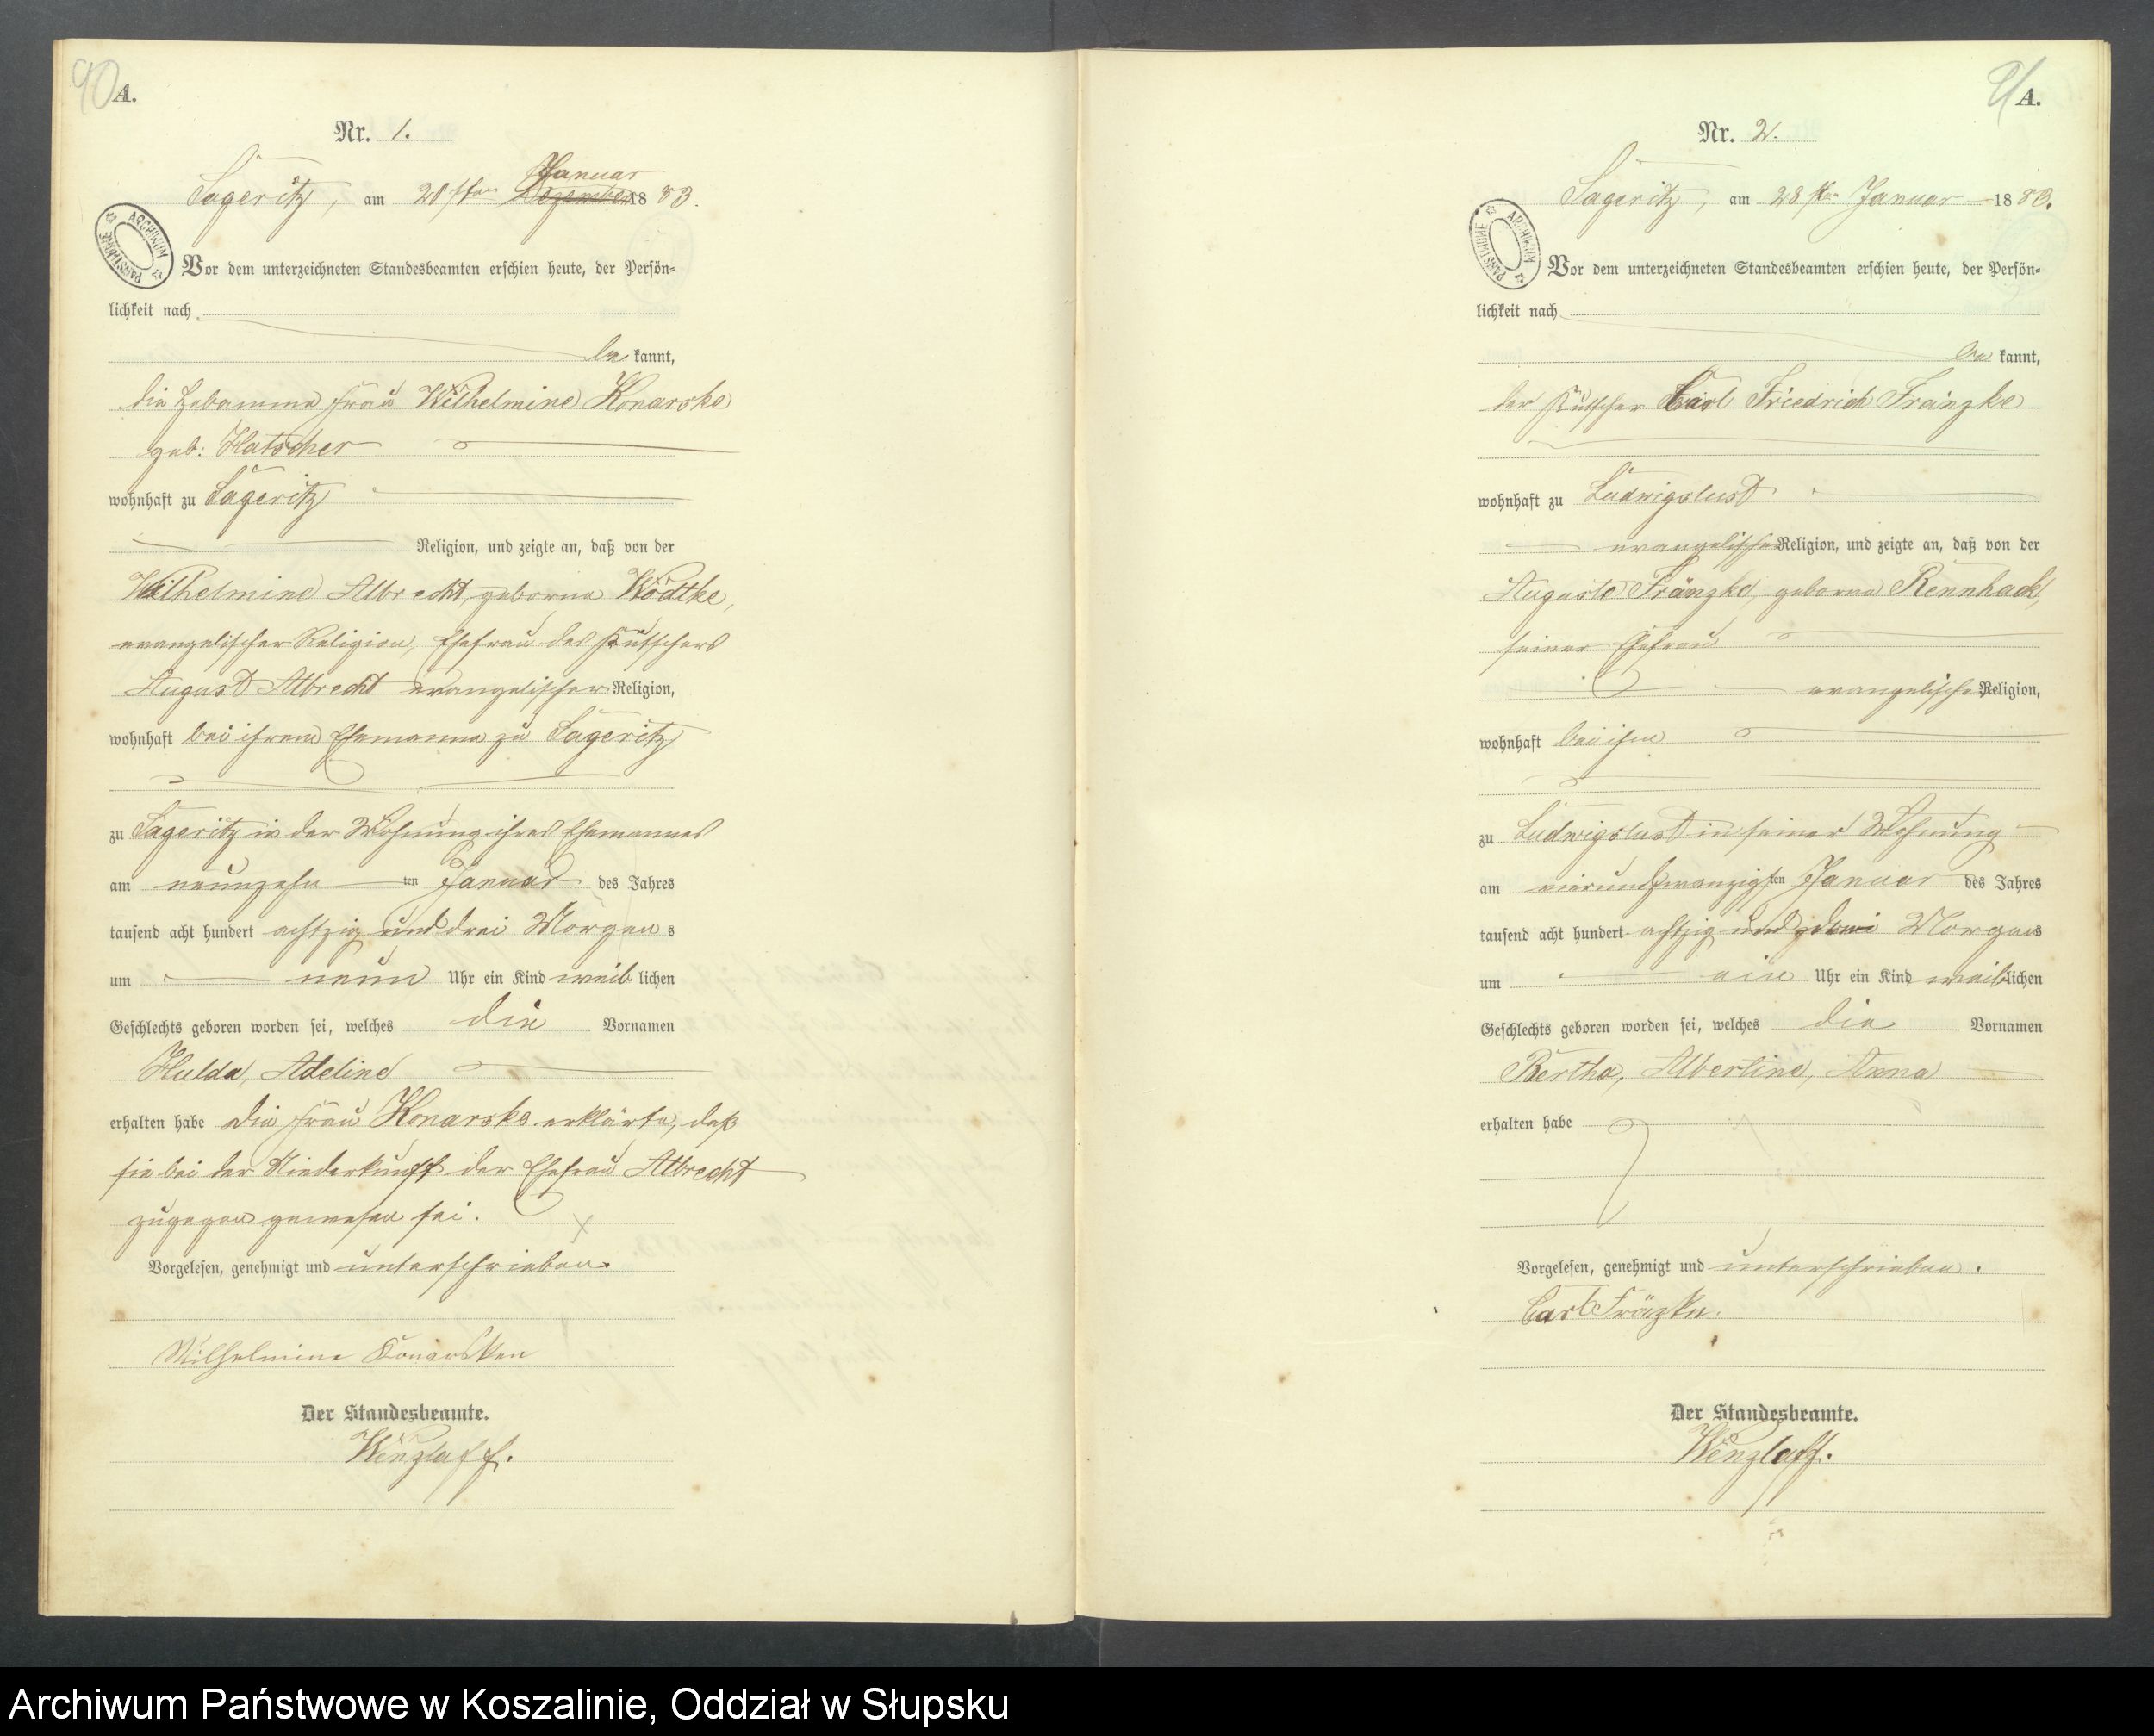 90
A.
Nr. 1.
Sageritz, am 20sten Januar
Dezember 1883.
ARCHIWUM PAŃSTWOWE
Vor dem unterzeichneten Standesbeamten erschien heute, der Persön-
lichkeit nach
be kannt,
die Hebamme Frau Wilhelmine Konarske
geb: Hatscher
wohnhaft zu Sageritz
Religion, und zeigte an, daß von der
Wilhelmine Albrecht, geborne Wödtke,
evangelischer Religion, Ehefrau des Kutschers
August Albrecht evangelischer Religion,
wohnhaft bei ihrem Ehemanne zu Sageritz
zu Sageritz in der Wohnung ihres Ehemannes
am neunzehn ten Januar des Jahres
tausend acht hundert achtzig und drei Morgen s
um neun Uhr ein Kind weib lichen
Geschlechts geboren worden sei, welches die Vornamen
Hulda, Adeline
erhalten habe Die Frau Konarske erklärte, daß
sie bei der Niederkunft der Ehefrau Albrecht
zugegen gewesen sei.
Vorgelesen, genehmigt und unterschrieben.
Wilhelmine Konarsken
Der Standesbeamte.
Wenzlaff.
91
A.
Nr. 2.
Sageritz, am 28sten Januar 1883.
ARCHIWUM PAŃSTWOWE
Vor dem unterzeichneten Standesbeamten erschien heute, der Persön-
lichkeit nach
be kannt,
der Kutscher Carl Friedrich Fränzke
wohnhaft zu Ludwigslust
evangelischer Religion, und zeigte an, daß von der
Auguste Fränzke, geborne Rennhack,
seiner Ehefrau
evangelischer Religion,
wohnhaft bei ihm
zu Ludwigslust in seiner Wohnung
am vierundzwanzigsten Januar des Jahres
tausend acht hundert achtzig und drei Morgens
um ein Uhr ein Kind weiblichen
Geschlechts geboren worden sei, welches die Vornamen
Bertha, Albertine, Anna
erhalten habe
Vorgelesen, genehmigt und unterschrieben.
Carl Fräzke.
Der Standesbeamte.
Wenzlaff.
Archiwum Państwowe w Koszalinie, Oddział w Słupsku